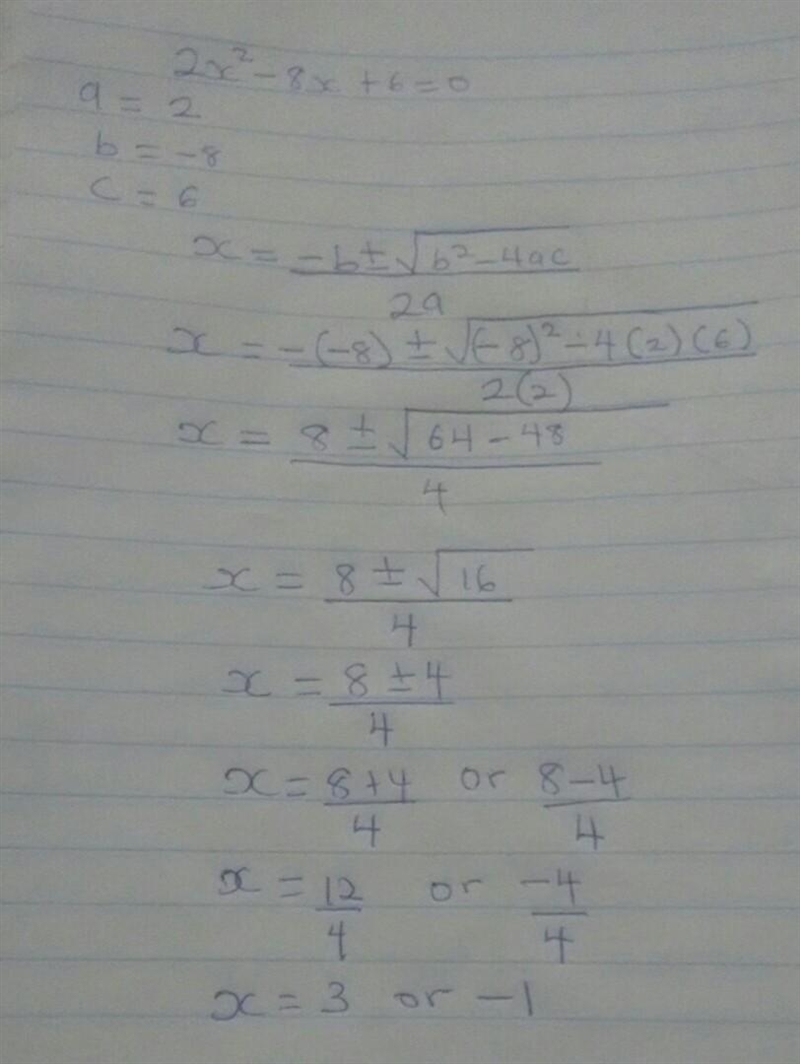 2x² - 8x + 6 = 0
a = 2
b = -8
c = 6
x = -b ± √(b² - 4ac) / 2a
x = -(-8) ± √((-8)² - 4(2)(6)) / 2(2)
x = 8 ± √(64 - 48) / 4
x = 8 ± √16 / 4
x = 8 ± 4 / 4
x = 8+4 / 4 or 8-4 / 4
x = 12/4 or -4/4
x = 3 or -1